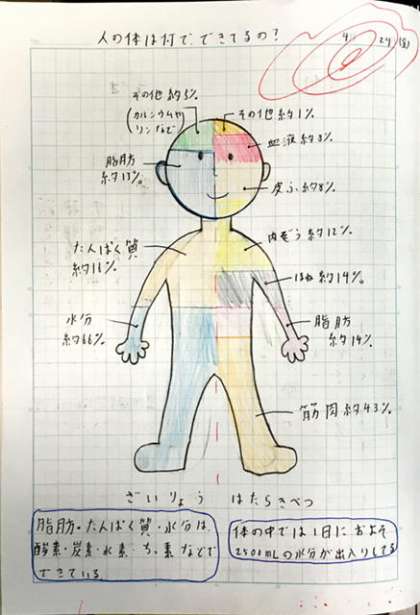 人の体は何でできてるの?
4 24 (金)
その他約5%
(カルシウムや
リンなど)
その他約1%
血液約8%
脂肪
約13%
皮ふ約8%
たんぱく質
約16%
内ぞう約12%
ほね約14%
水分
約66%
脂肪
約14%
筋肉約43%
ざいりょう はたらきべつ
脂肪・たんぱく質・水分は、
酸素・炭素・水素・ちっ素などで
できている。
体の中では1日におよそ
2500mLの水分が出入りしてる